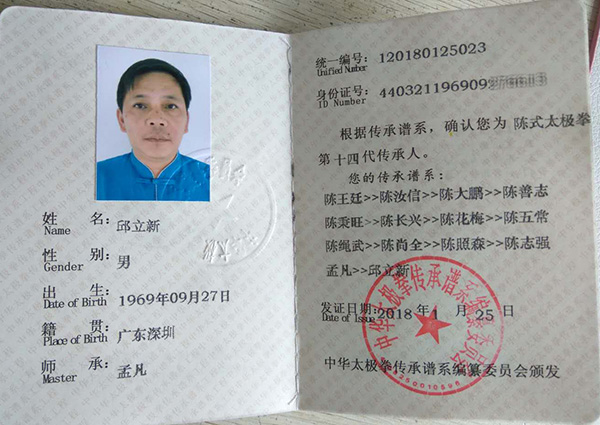 姓 名： 邱立新
Name
性 别： 男
Gender
出 生： 1969年09月27日
Date of Birth
籍 贯： 广东深圳
Place of Birth
师 承： 孟凡
Master
统一编号： 120180125023
Unified Number
身份证号： 440321196909
ID Number
根据传承谱系，确认您为 陈式太极拳
第十四代传承人。
您的传承谱系：
陈王廷>>陈汝信>>陈大鹏>>陈善志
陈秉旺>>陈长兴>>陈花梅>>陈五常
陈绳武>>陈尚全>>陈照森>>陈志强
孟凡>>邱立新
发证日期： 2018年1月25日
Date of Issue
中华太极拳传承谱系编纂委员会
中华太极拳传承谱系编纂委员会颁发